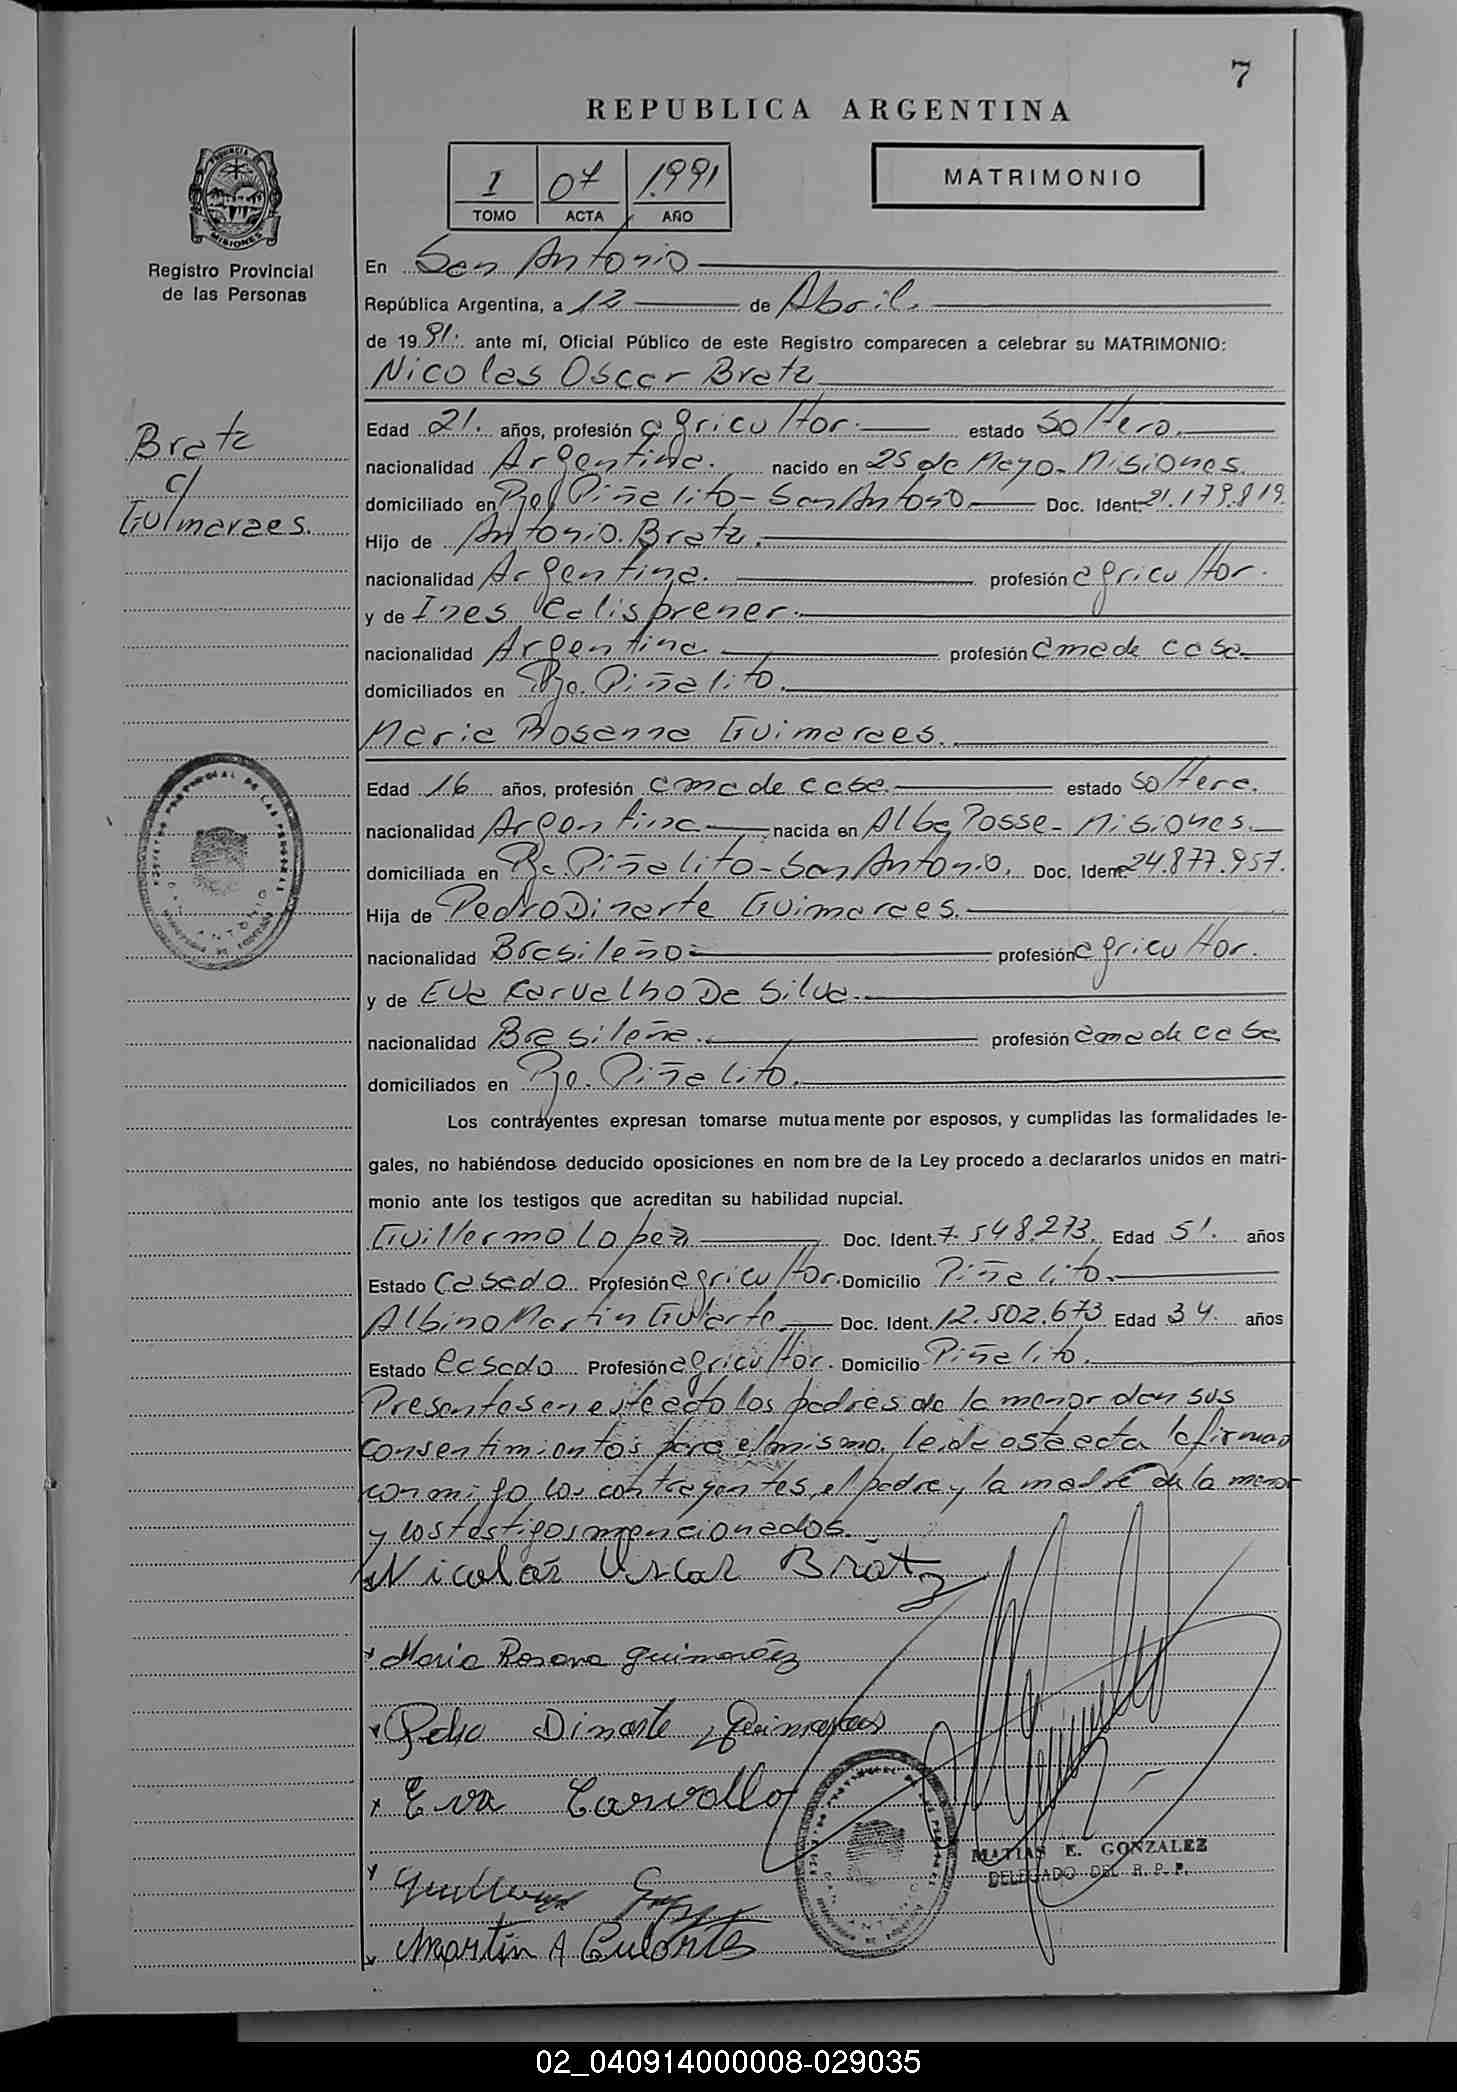 7
REPUBLICA ARGENTINA
I 07 1.991
TOMO ACTA AÑO
MATRIMONIO
PROVINCIA DE
MISIONES
Registro Provincial
de las Personas
En San Antonio
República Argentina, a 12 de Abril.
de 19 91. ante mí, Oficial Público de este Registro comparecen a celebrar su MATRIMONIO:
Nicolas Oscar Bratz
Bratz
c/
Guimaraes.
Edad 21. años, profesión agricultor. estado soltero.
nacionalidad Argentina. nacido en 25 de Mayo - Misiones.
domiciliado en Pje. Piñalito - San Antonio Doc. Ident. 21.179.819.
Hijo de Antonio Bratz.
nacionalidad Argentina. profesión agricultor.
y de Ines
nacionalidad Argentina profesión ama de casa.
domiciliados en Pje. Piñalito.
Maria Rosanna Guimaraes.
Edad 16 años, profesión ama de casa. estado soltera.
nacionalidad Argentina nacida en Alba Posse - Misiones.
domiciliada en Pje Piñalito - San Antonio. Doc. Ident. 24.877.957.
Hija de Pedro Dinarte Guimaraes.
nacionalidad Brasileño profesión agricultor.
y de Eva Karvalho Da Silva.
nacionalidad Brasileña. profesión ama de casa
domiciliados en Pje. Piñalito.
Los contrayentes expresan tomarse mutuamente por esposos, y cumplidas las formalidades le-
gales, no habiéndose deducido oposiciones en nombre de la Ley procedo a declararlos unidos en matri-
monio ante los testigos que acreditan su habilidad nupcial.
Guillermo Lopez Doc. Ident. 7.548.273. Edad 51. años
Estado Casado Profesión agricultor. Domicilio Piñalito.
Albino Martin Gularte. Doc. Ident. 12.502.673 Edad 34. años
Estado Casado Profesión agricultor. Domicilio Piñalito.
Presentes en este acto los padres de la menor dan sus
consentimientos para el mismo. leida esta acta la firman
conmigo los contrayentes, el padre y la madre de la menor
y los testigos mencionados.
Nicolás Oscar Bratz
Maria Rosana Guimaráez
Pedro Dinarte Guimaraes
Eva Carvallo
Guillermo
MATIAS E. GONZALEZ
DELEGADO DEL R. P. P.
Martin A Gularte
02_040914000008-029035